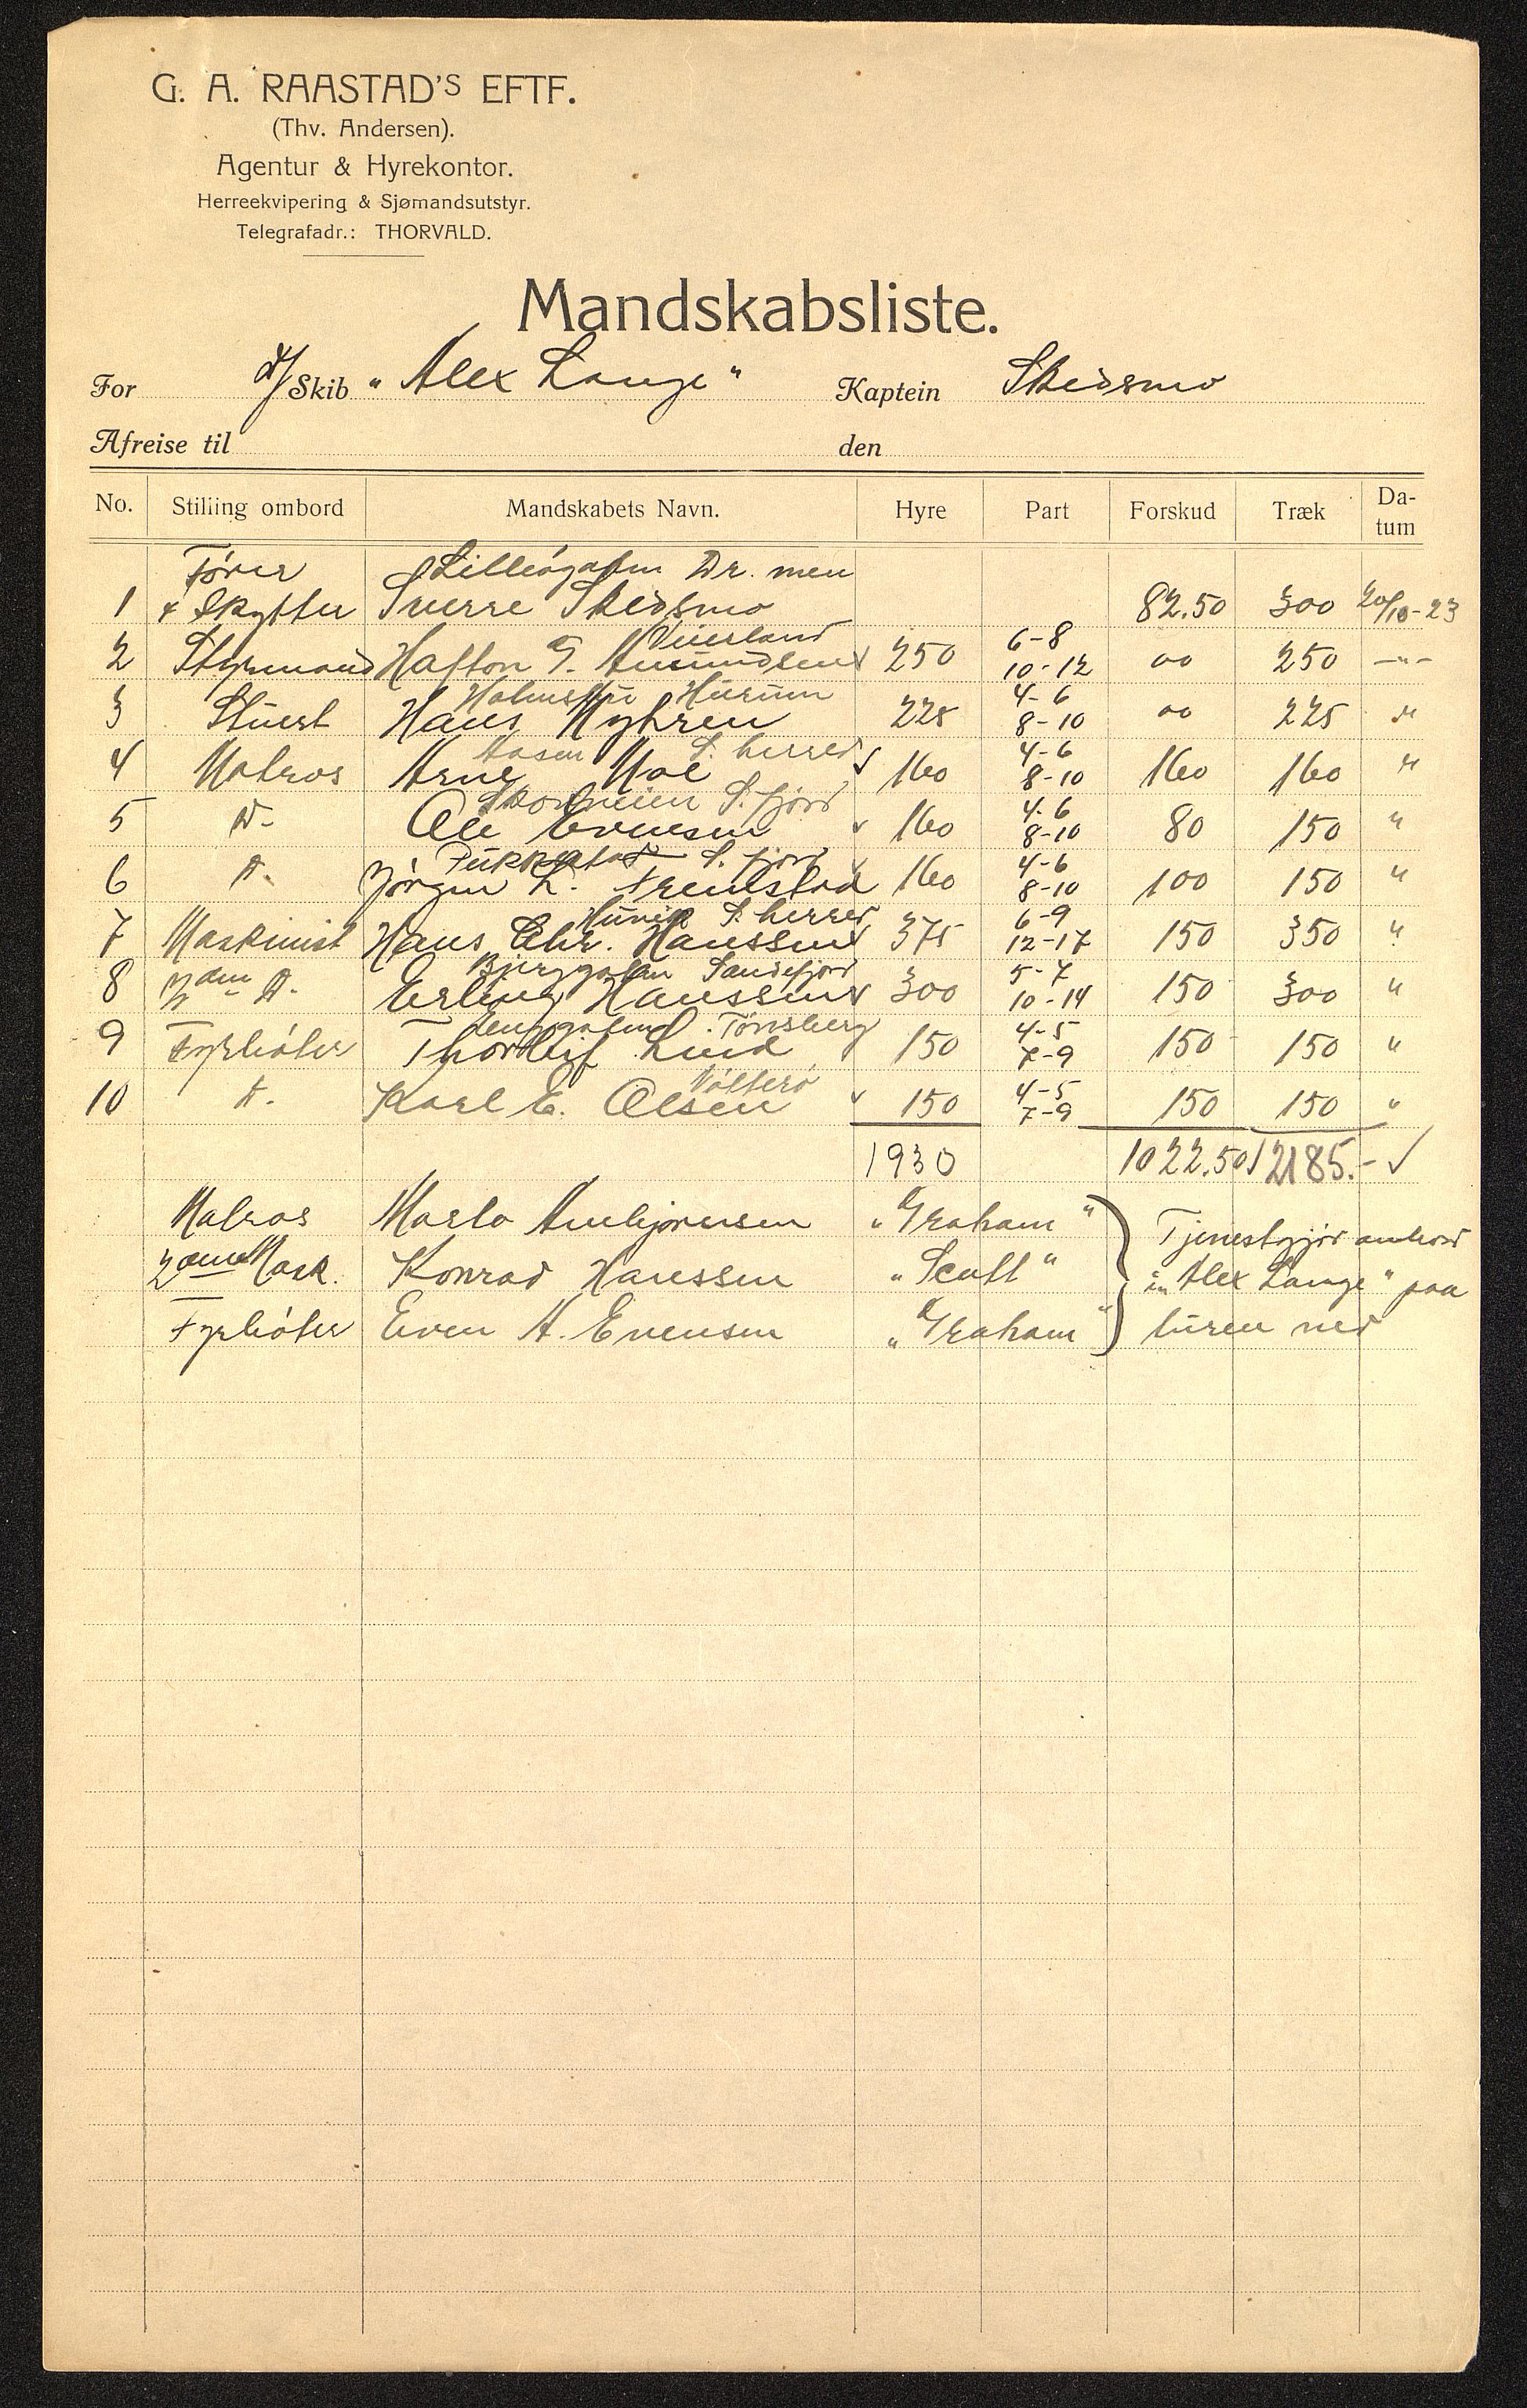 G. A. RAASTAD'S EFTF.
(Thv. Andersen).
Agentur & Hyrekontor.
Herreekvipering & Sjømandsutstyr.
Telegrafadr.: THORVALD.
Mandskabsliste.
For d/Skib "Alex Lange" Kaptein Skedsmo
Afreise til den
No. Stilling ombord Mandskabets Navn. Hyre Part Forskud Træk Da-tum
Fører Dr. men
1 + Skytter Sverre Skedsmo 82.50 300 20/10-23
Veierland 6-8
2 Styrmand Halfton Amundsen 250 10-12 00 250 -"-
Hurum 4-6
3 Stuert Hans Myhren 225 8-10 00 225 "
Aasen S. herred 4-6
4 Matros Arne Moe √ 160 8-10 160 160 "
S. fjord 4-6
5 D- Ole Evensen 160 8-10 80 150 "
Pukkestad S. fjord 4-6
6 D- Jörgen L. Fremstad 160 8-10 100 150 "
S. herred 6-9
7 Maskinist Hans Chr. Hanssen 375 12-17 150 350 "
Bjerggaten Sandefjord 5-7
8 2den D- Erling Hanssen 300 10-14 150 300 "
Tönsberg 4-5
9 Fyrböter Thorleif Lund 150 7-9 150 150 "
Nötterö 4-5
10 D- Karl E. Olsen 150 7-9 150 150 "
1930 1022.50 2185.- √
Matros "Graham" Tjenestgjör ombord
2den Mask. Konrad Hanssen "Scott" i "Alex Lange" paa
Fyrböter Even A. Evensen "Graham" turen ned